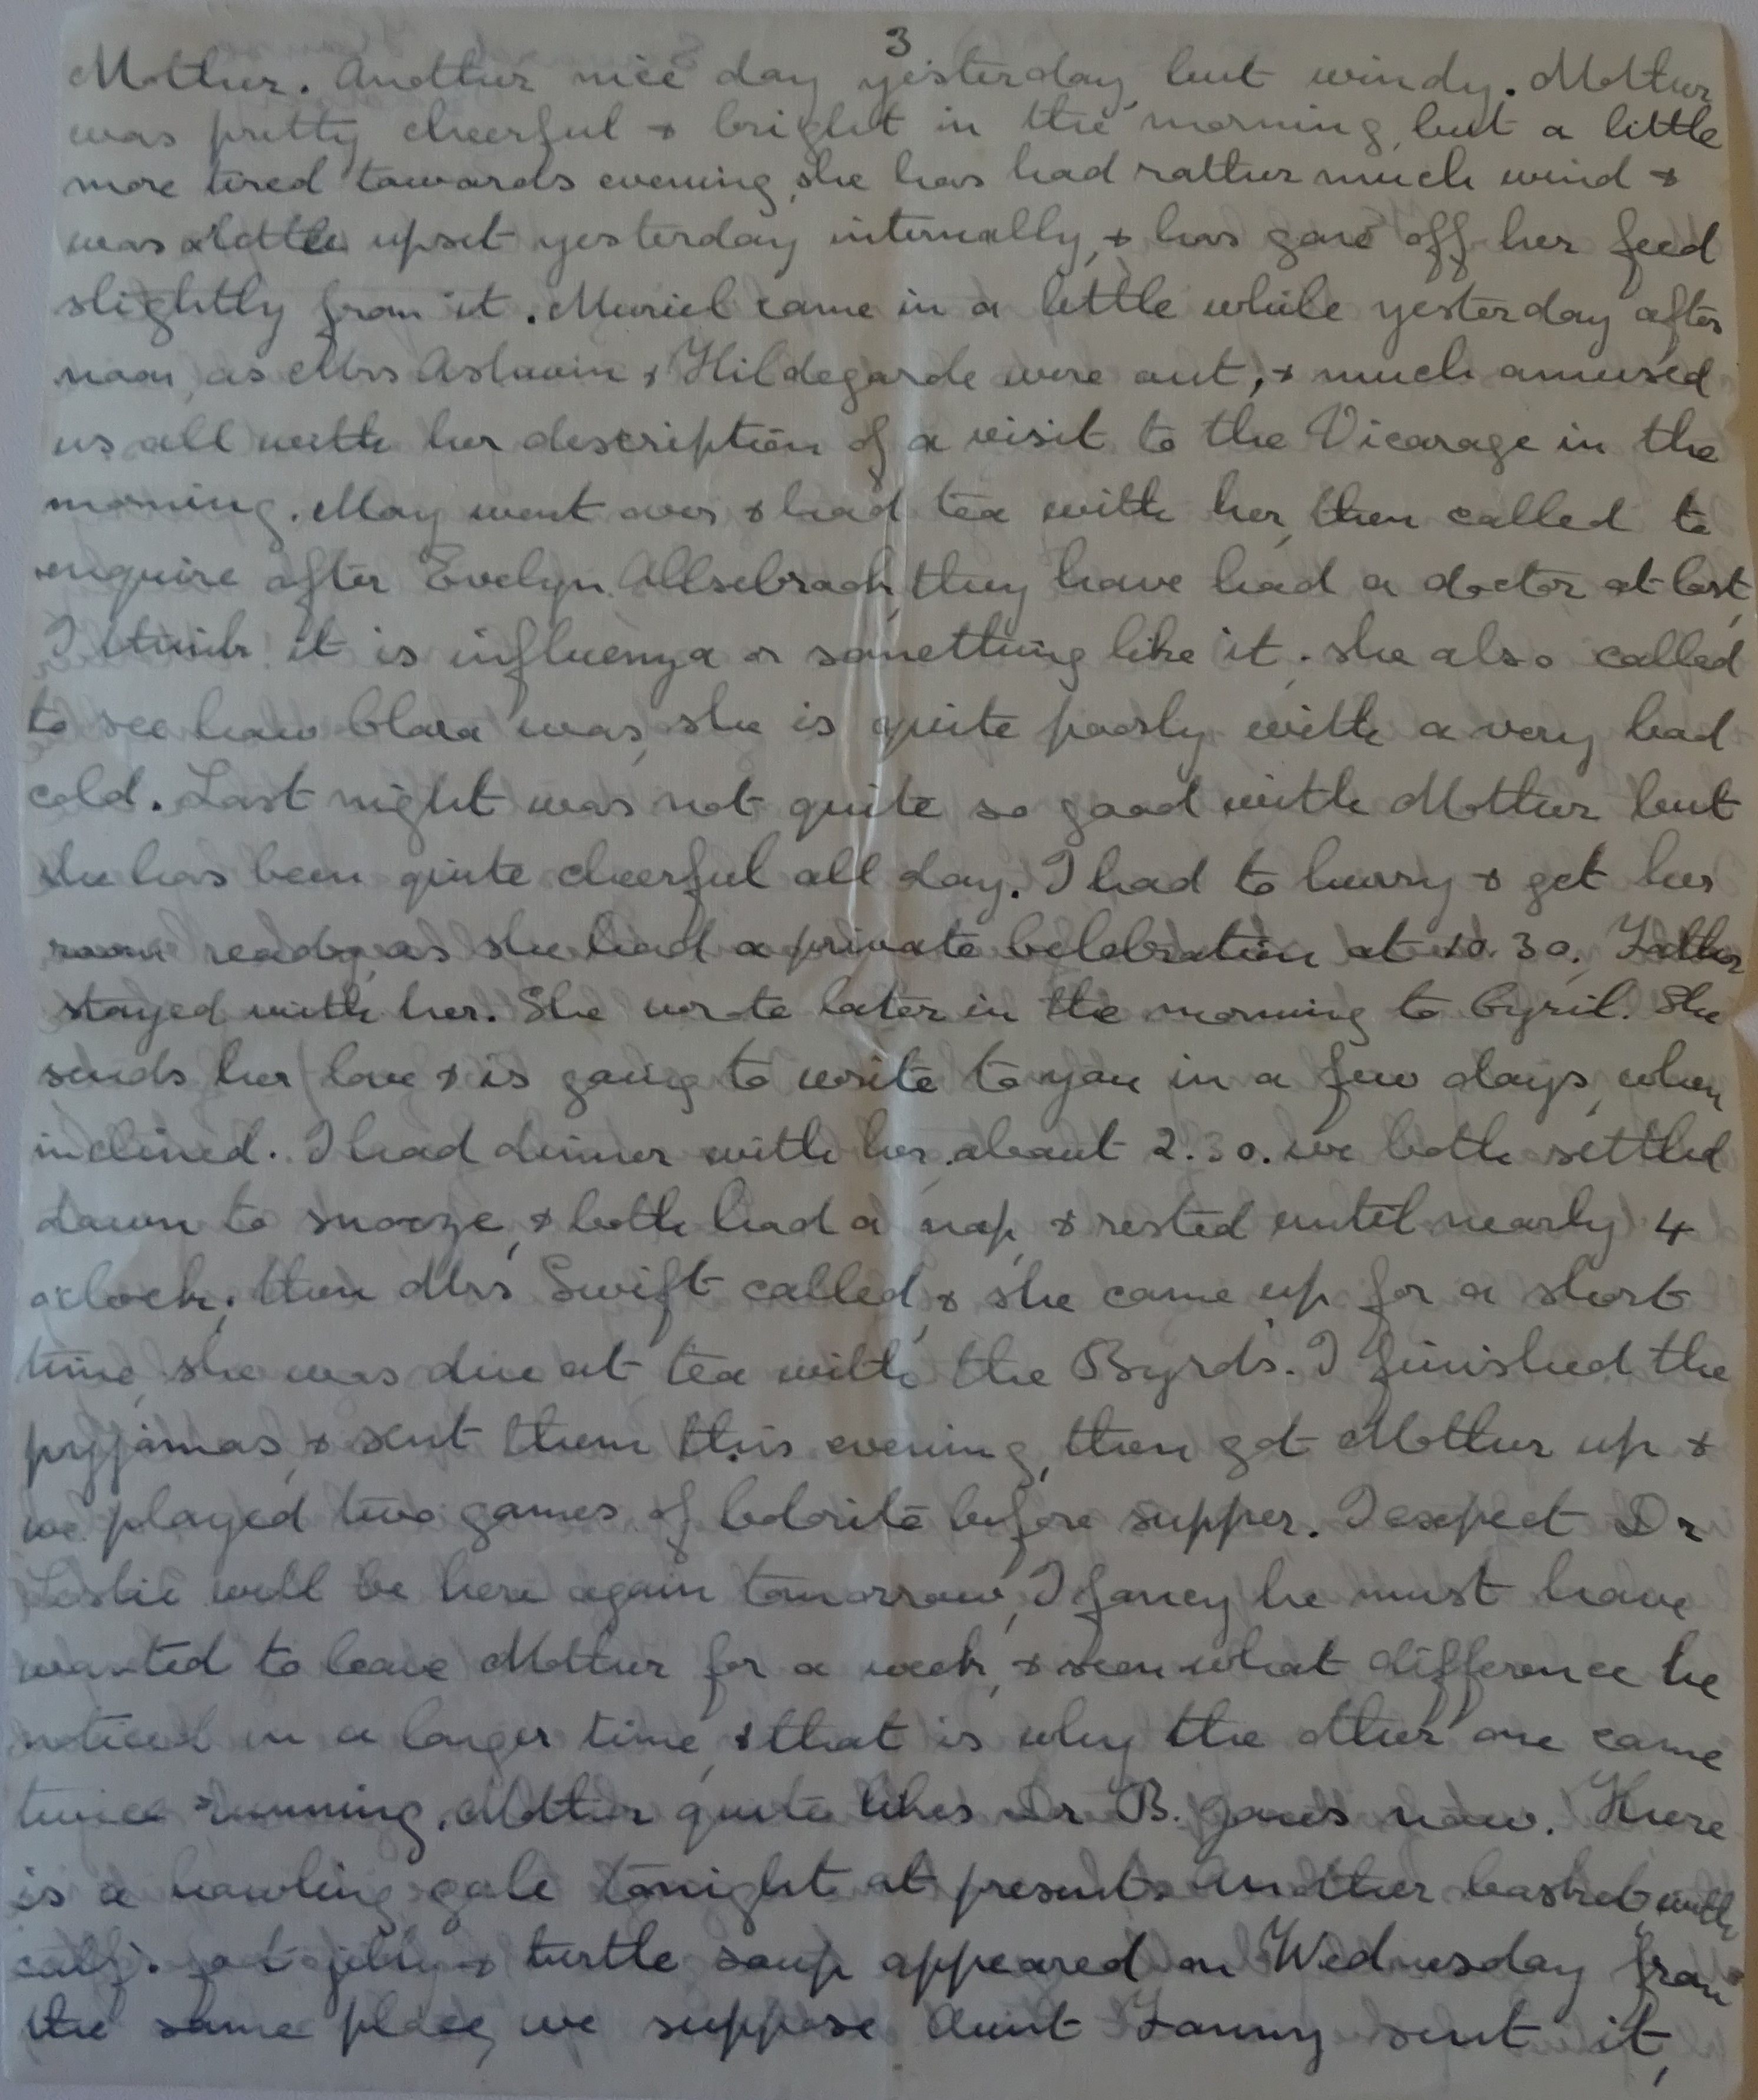 3
Mother. Another nice day yesterday, but windy. Mother
was pretty cheerful & bright in the morning, but a little
more tired towards evening, she has had rather much wind &
was a little upset yesterday internally, & has gone off her feed
slightly from it. Muriel came in a little while yesterday after
noon, as Mrs Ashwin & Hildegarde were out, & much amused
us all with her description of a visit to the Vicarage in the
morning. May went over & had tea with her, then called to
enquire after Evelyn Allsebrook, they have had a doctor at last,
I think it is influenza or something like it. she also called
to see how Clara was, she is quite poorly with a very bad
cold. Last night was not quite so good with Mother but
she has been quite cheerful all day. I had to hurry & get her
room ready, as she had a private Celebration at 10.30. Father
stayed with her. She wrote later in the morning to Cyril. She
sends her love & is going to write to you in a few days, when
inclined. I had dinner with her, about 2.30. we both settled
down to snooze, & both had a nap, & rested until nearly 4
o'clock, then Mrs Swift called, & she came up for a short
time, she was due at tea with the Byrds. I finished the
pyjamas, & sent them this evening, then got Mother up &
we played two games of Colorito before supper. I expect Dr
Leslie will be here again tomorrow, I fancy he must have
wanted to leave Mother for a week, & seen what difference he
noticed in a longer time, & that is why the other one came
twice running. Mother quite likes Dr B. Jones now. There
is a howling gale tonight at present. Another basket with
calf. foot jelly & turtle soup appeared on Wednesday from
the same place, we suppose Aunt Fanny sent it,